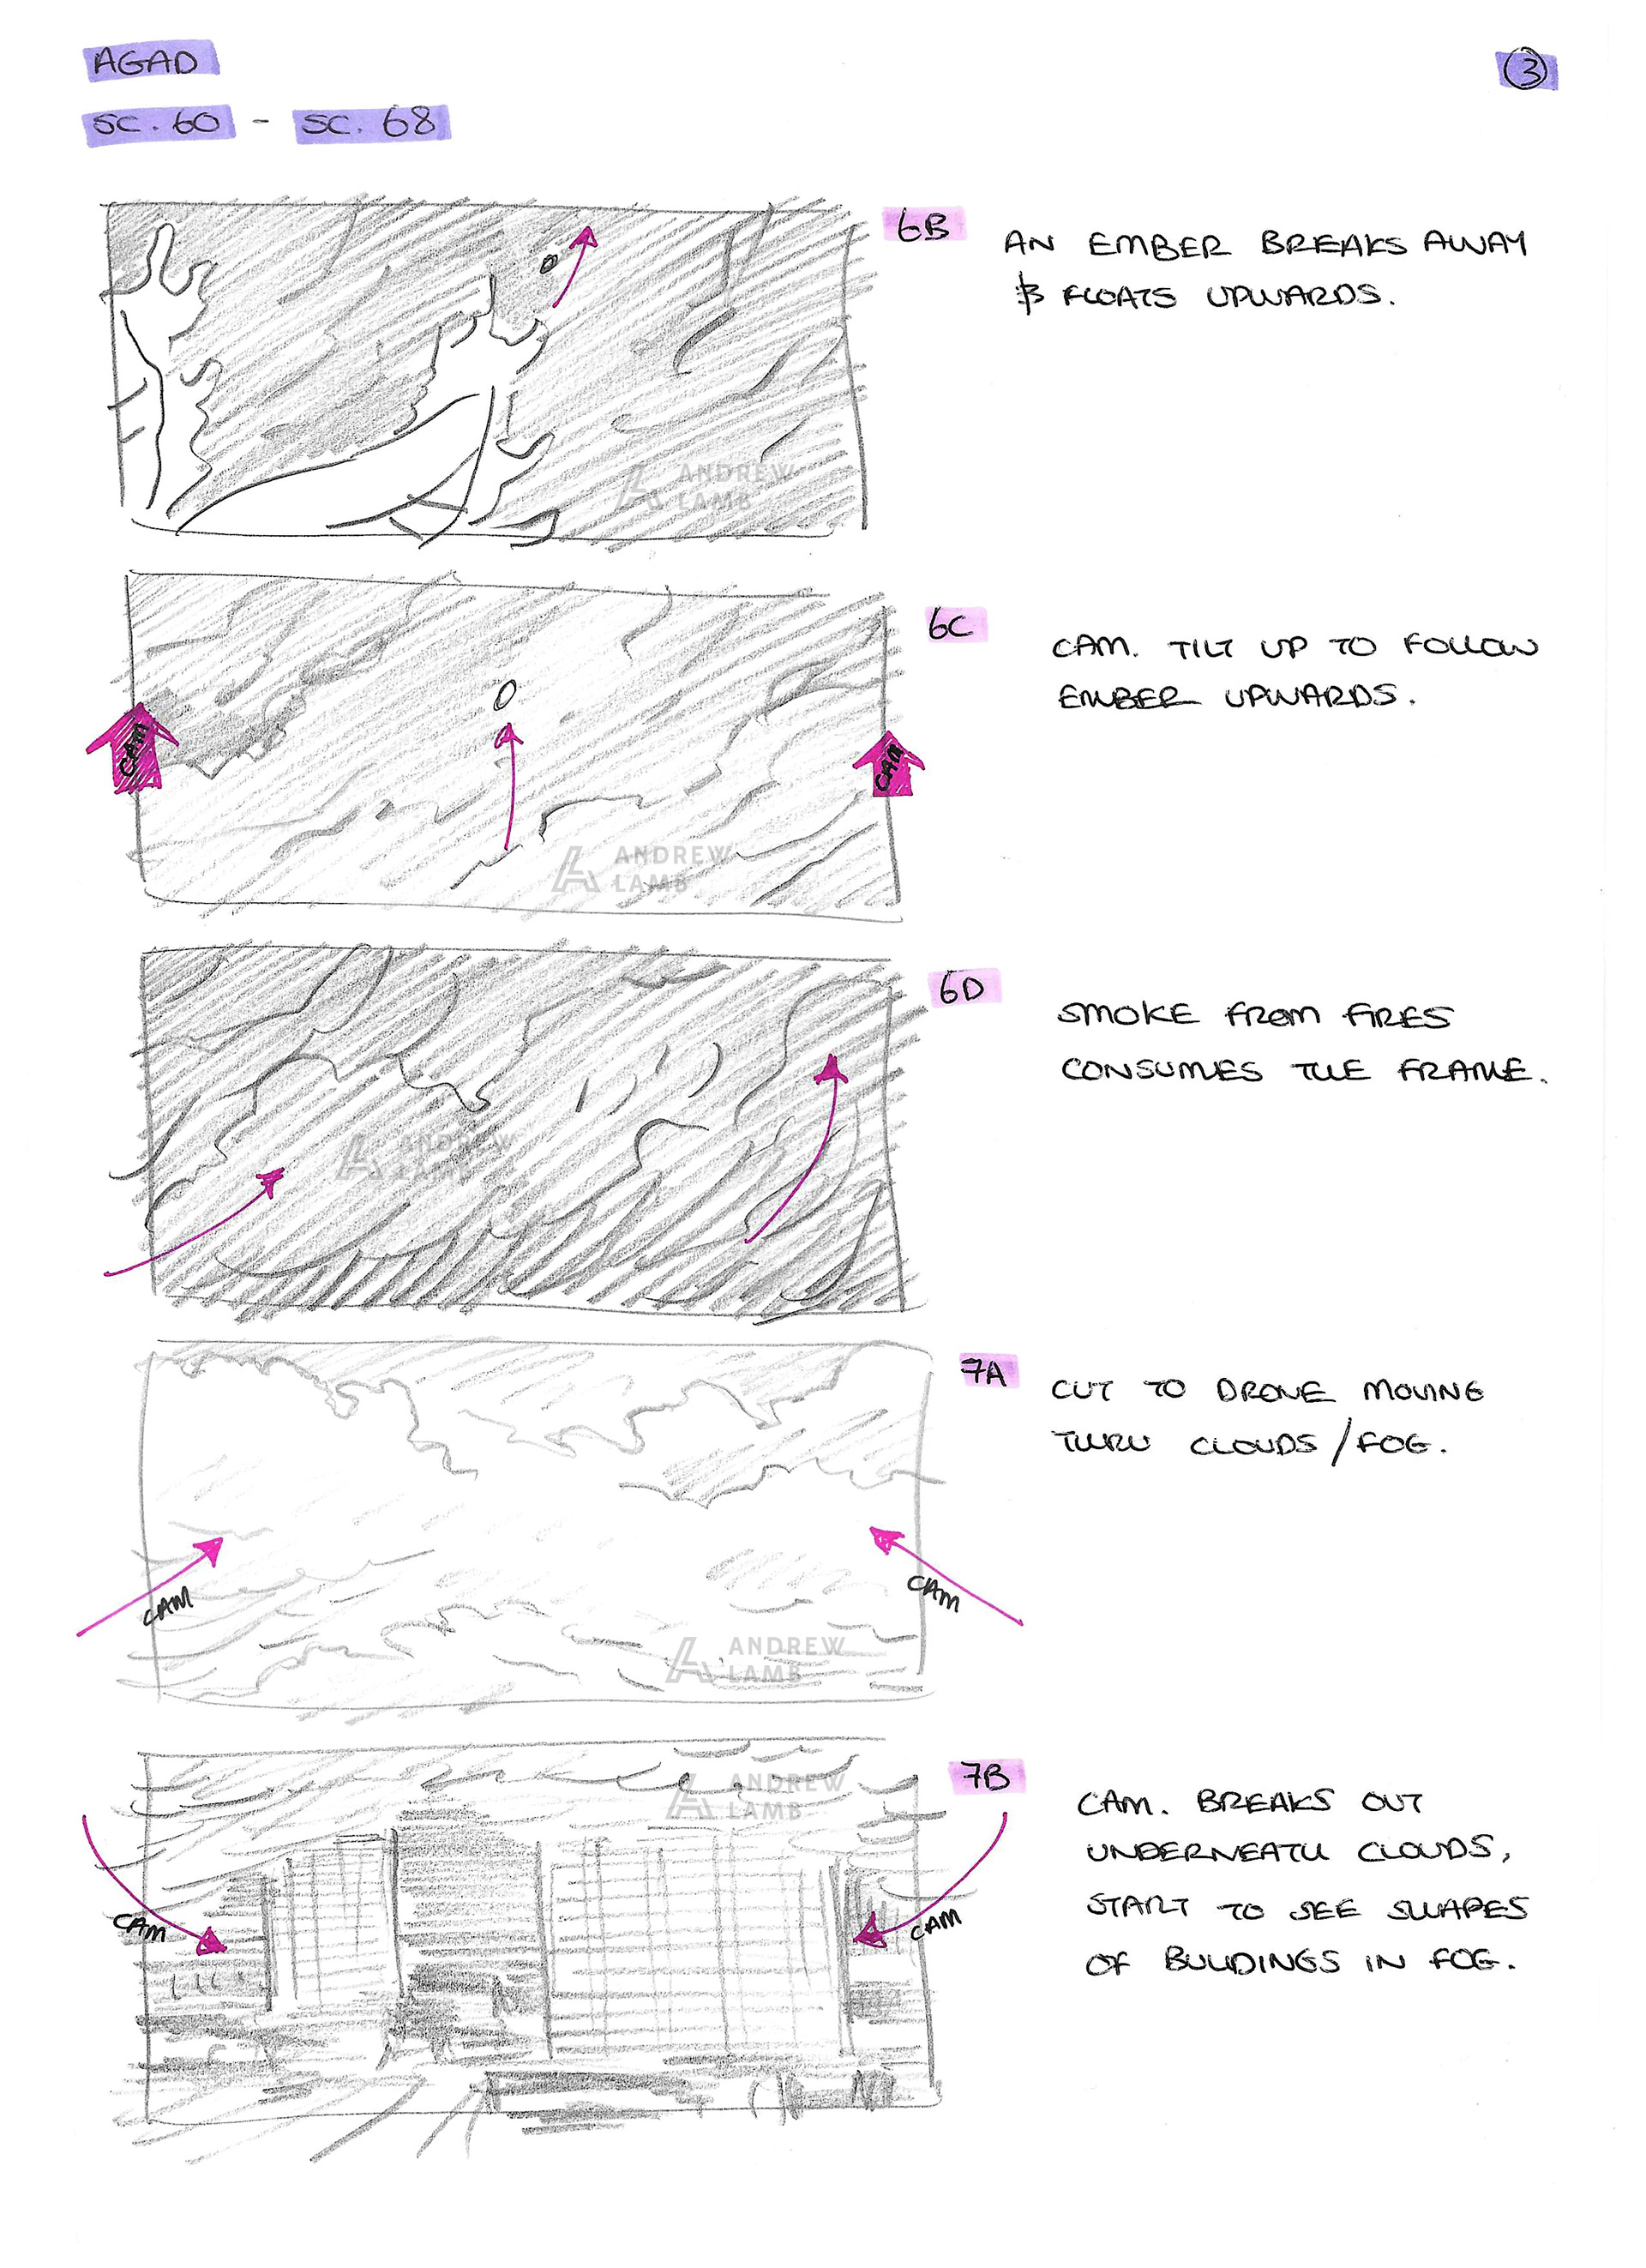 AGAD
3
SC. 60 - SC. 68
6B
AN EMBER BREAKS AWAY
& FLOATS UPWARDS.
ANDREW
LAMB
6C
CAM. TILT UP TO FOLLOW
EMBER UPWARDS.
CAM
CAM
ANDREW
LAMB
6D
SMOKE FROM FIRES
CONSUMES THE FRAME.
ANDREW
LAMB
7A
CUT TO DRONE MOVING
THRU CLOUDS/FOG.
CAM
CAM
ANDREW
LAMB
7B
CAM. BREAKS OUT
UNDERNEATH CLOUDS,
START TO SEE SHAPES
OF BUILDINGS IN FOG.
ANDREW
LAMB
CAM
CAM